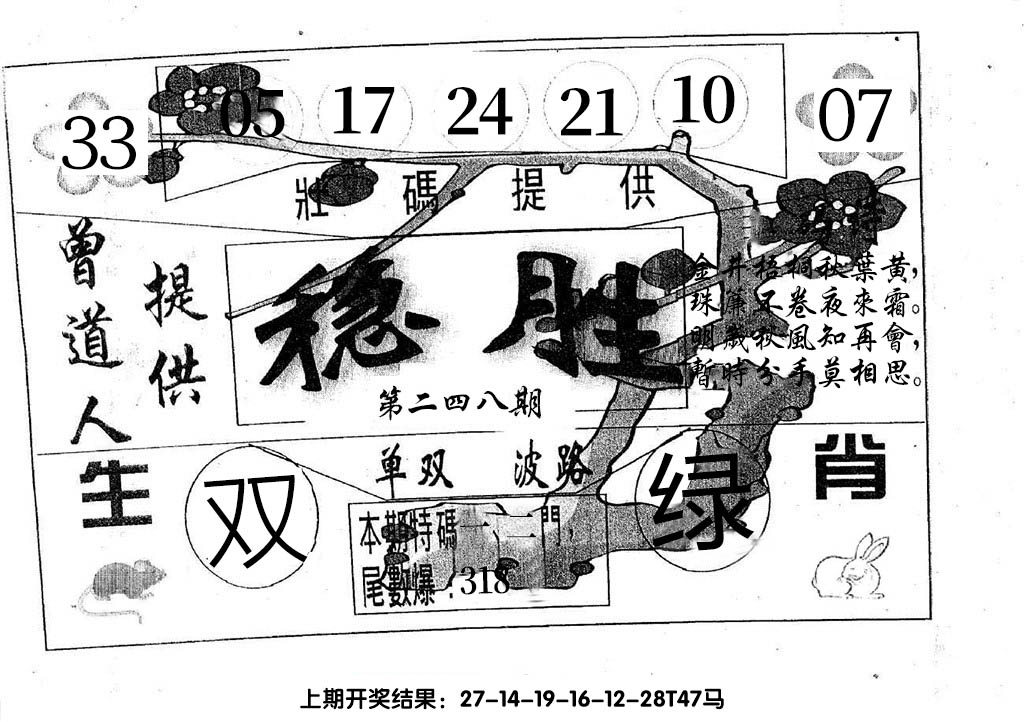 33 05 17 24 21 10 07
壯碼提供
特
曾道人
提供
稳胜
第二四八期
金井梧桐秋葉黃,
珠簾不卷夜來霜。
明歲秋風知再會,
暫時分手莫相思。
生肖
单双 波路
双 绿
本期特碼一、二門,
尾數爆:318
上期开奖结果:27-14-19-16-12-28T47马